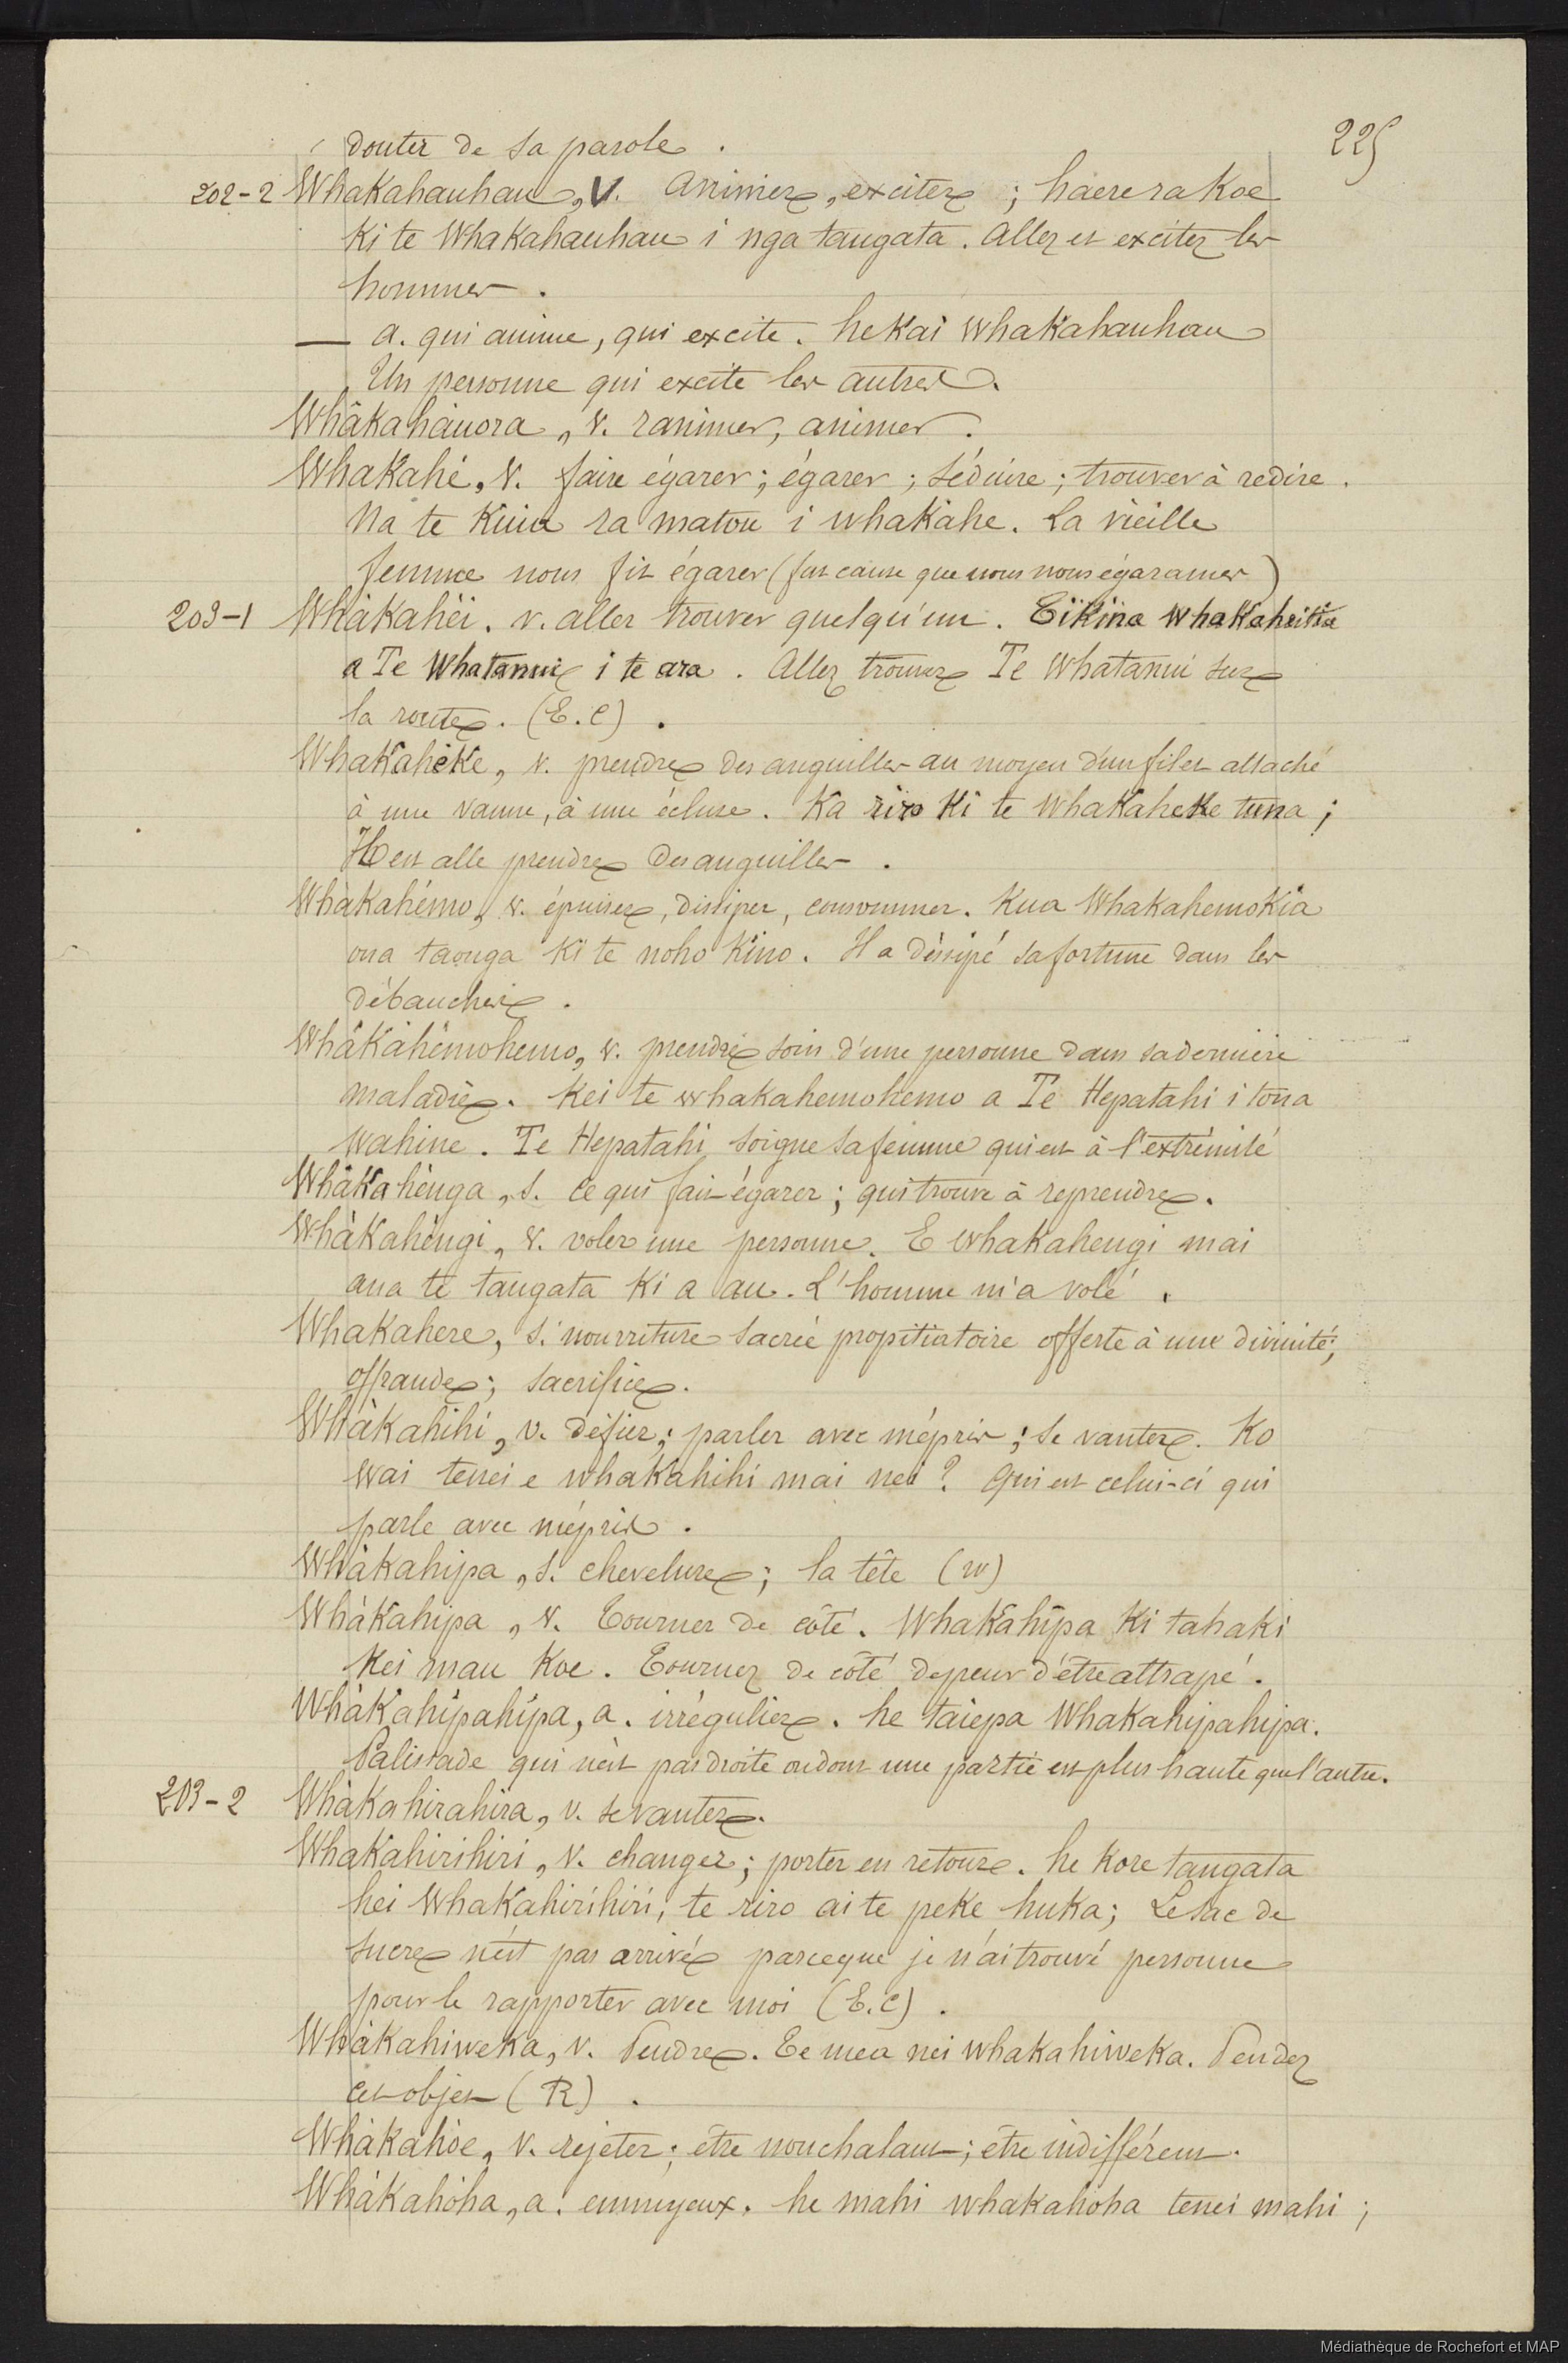 225
douter de sa parole.
202-2 Whakahauhau, v. animer, exciter; haere ra koe
ki te Whakahauhau i nga tangata. Allez et excitez les
hommes.
— a. qui anime, qui excite. he kai whakahauhau
Un personne qui excite les autres.
Whàkahàuora, v. ranimer, animer.
Whakahé, v. faire égarer; égarer; séduire; trouver à redire.
Na te Kuia ra matou i whakahe. La vieille
femme nous fit égarer (fut cause que nous nous égarames)
203-1 Whàkahëi. v. aller trouver quelqu'un. Eikina whakaheikia
a Te Whatanui i te ara. Allez trouver Te Whatanui sur
la route. (E.C).
Whakahèke, v. prendre des anguilles au moyen d'un filet attaché
à une vanne, à une écluse. Ka riro Ki te whakaheke tuna;
Il est alle prendre des anguilles.
Whàkahémo, v. épuiser, dissiper, consommer. Kua Whakahemokia
ona taonga Ki te noho Kino. Il a dissipé sa fortune dans les
débauches.
Whàkàhémohemo, v. prendre soin d'une personne dans sa derniere
maladie. Kei te whakahemohemo a Te Hepatahi i tona
wahine. Te Hepatahi soigne sa femme qui est à l'extrémité
Whàkahènga, s. ce qui fait égarer; qui trouve à reprendre.
Whàkahèngi, v. voler une personne. E whakahengi mai
ana te tangata Ki a au. L'homme m'a volé.
Whakahere, s. nourriture sacrée propitiatoire offerte à une divinité;
offrande; sacrifice.
Whàkahihi, v. défier; parler avec mépris; se vanter. Ko
wai tenei e whakahihi mai nei? Qui est celui-ci qui
parle avec mépris.
Whàkahipa, s. chevelure; la tête (w)
Whàkahipa, v. Tourner de côté. Whakahipa Ki tahaki
Kei mau Koe. Tournez de côté de peur d'être attrapé.
Whàkahipahipa, a. irrégulier. he taiepa Whakahipahipa.
Palissade qui n'est pas droite ou dont une partie est plus haute que l'autre.
203-2 Whàkahirahira, v. se vanter.
Whakahirihiri, v. changer; porter en retour. he Kore tangata
hei Whakahirihiri, te riro ai te peke huka; Le sac de
sucre n'est pas arrivé parceque je n'ai trouvé personne
pour le rapporter avec moi (E.C).
Whàkahiweka, v. Pendre. Ee mea nei whakahiweka. Pendez
cet objet (R).
Whàkahòe, v. rejeter; être nonchalant; être indifférent.
Whàkahòha, a. ennuyeux. he mahi whakahoha tenei mahi;
Médiathèque de Rochefort et MAP